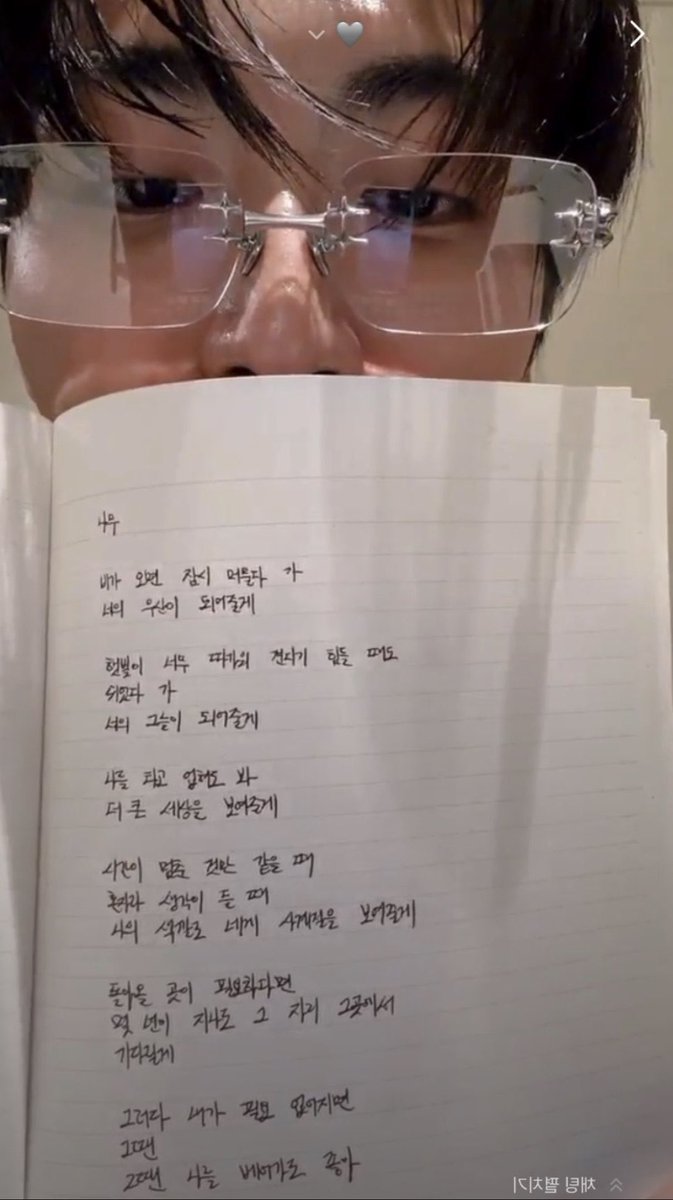 나무
비가 오면 잠시 머물다 가
너의 우산이 되어줄게
햇빛이 너무 따가워 견디기 힘들 때도
쉬었다 가
너의 그늘이 되어줄게
나를 봐
더 큰 세상을 보여줄게
시간이 멈춘 것만 같을 때
혼자라 생각이 든 때
나의 색깔로 네게 사계절을 보여줄게
돌아올 곳이 필요하다면
몇 년이 지나도 그 자리 그곳에서
기다릴게
그러다 내가 필요 없어지면
그땐
그땐 나를 베어가도 좋아
채팅 펼치기